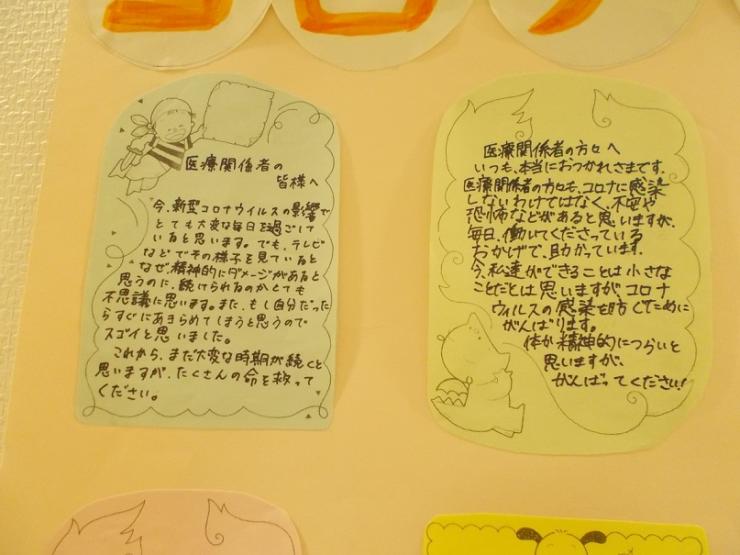 コロナ
医療関係者の
皆様へ
今、新型コロナウイルスの影響で
とても大変な毎日を過ごして
いると思います。でも、テレビ
などでその様子を見ていると
なぜ、精神的にダメージがあると
思うのに、続けられるのかとても
不思議に思います。また、もし自分だった
らすぐにあきらめてしまうと思うので
スゴイと思いました。
これから、まだ大変な時期が続くと
思いますが、たくさんの命を救って
ください。
医療関係者の方々へ
いつも、本当におつかれさまです。
医療関係者の方々も、コロナに感染
しないわけではなく、不安や
恐怖などがあると思いますが、
毎日、働いてくださっている
おかげで、助かっています。
今、私達ができることは小さな
ことだとは思いますが、コロナ
ウィルスの感染を防ぐために
がんばります。
体が精神的につらいと
思いますが、
がんばってください!